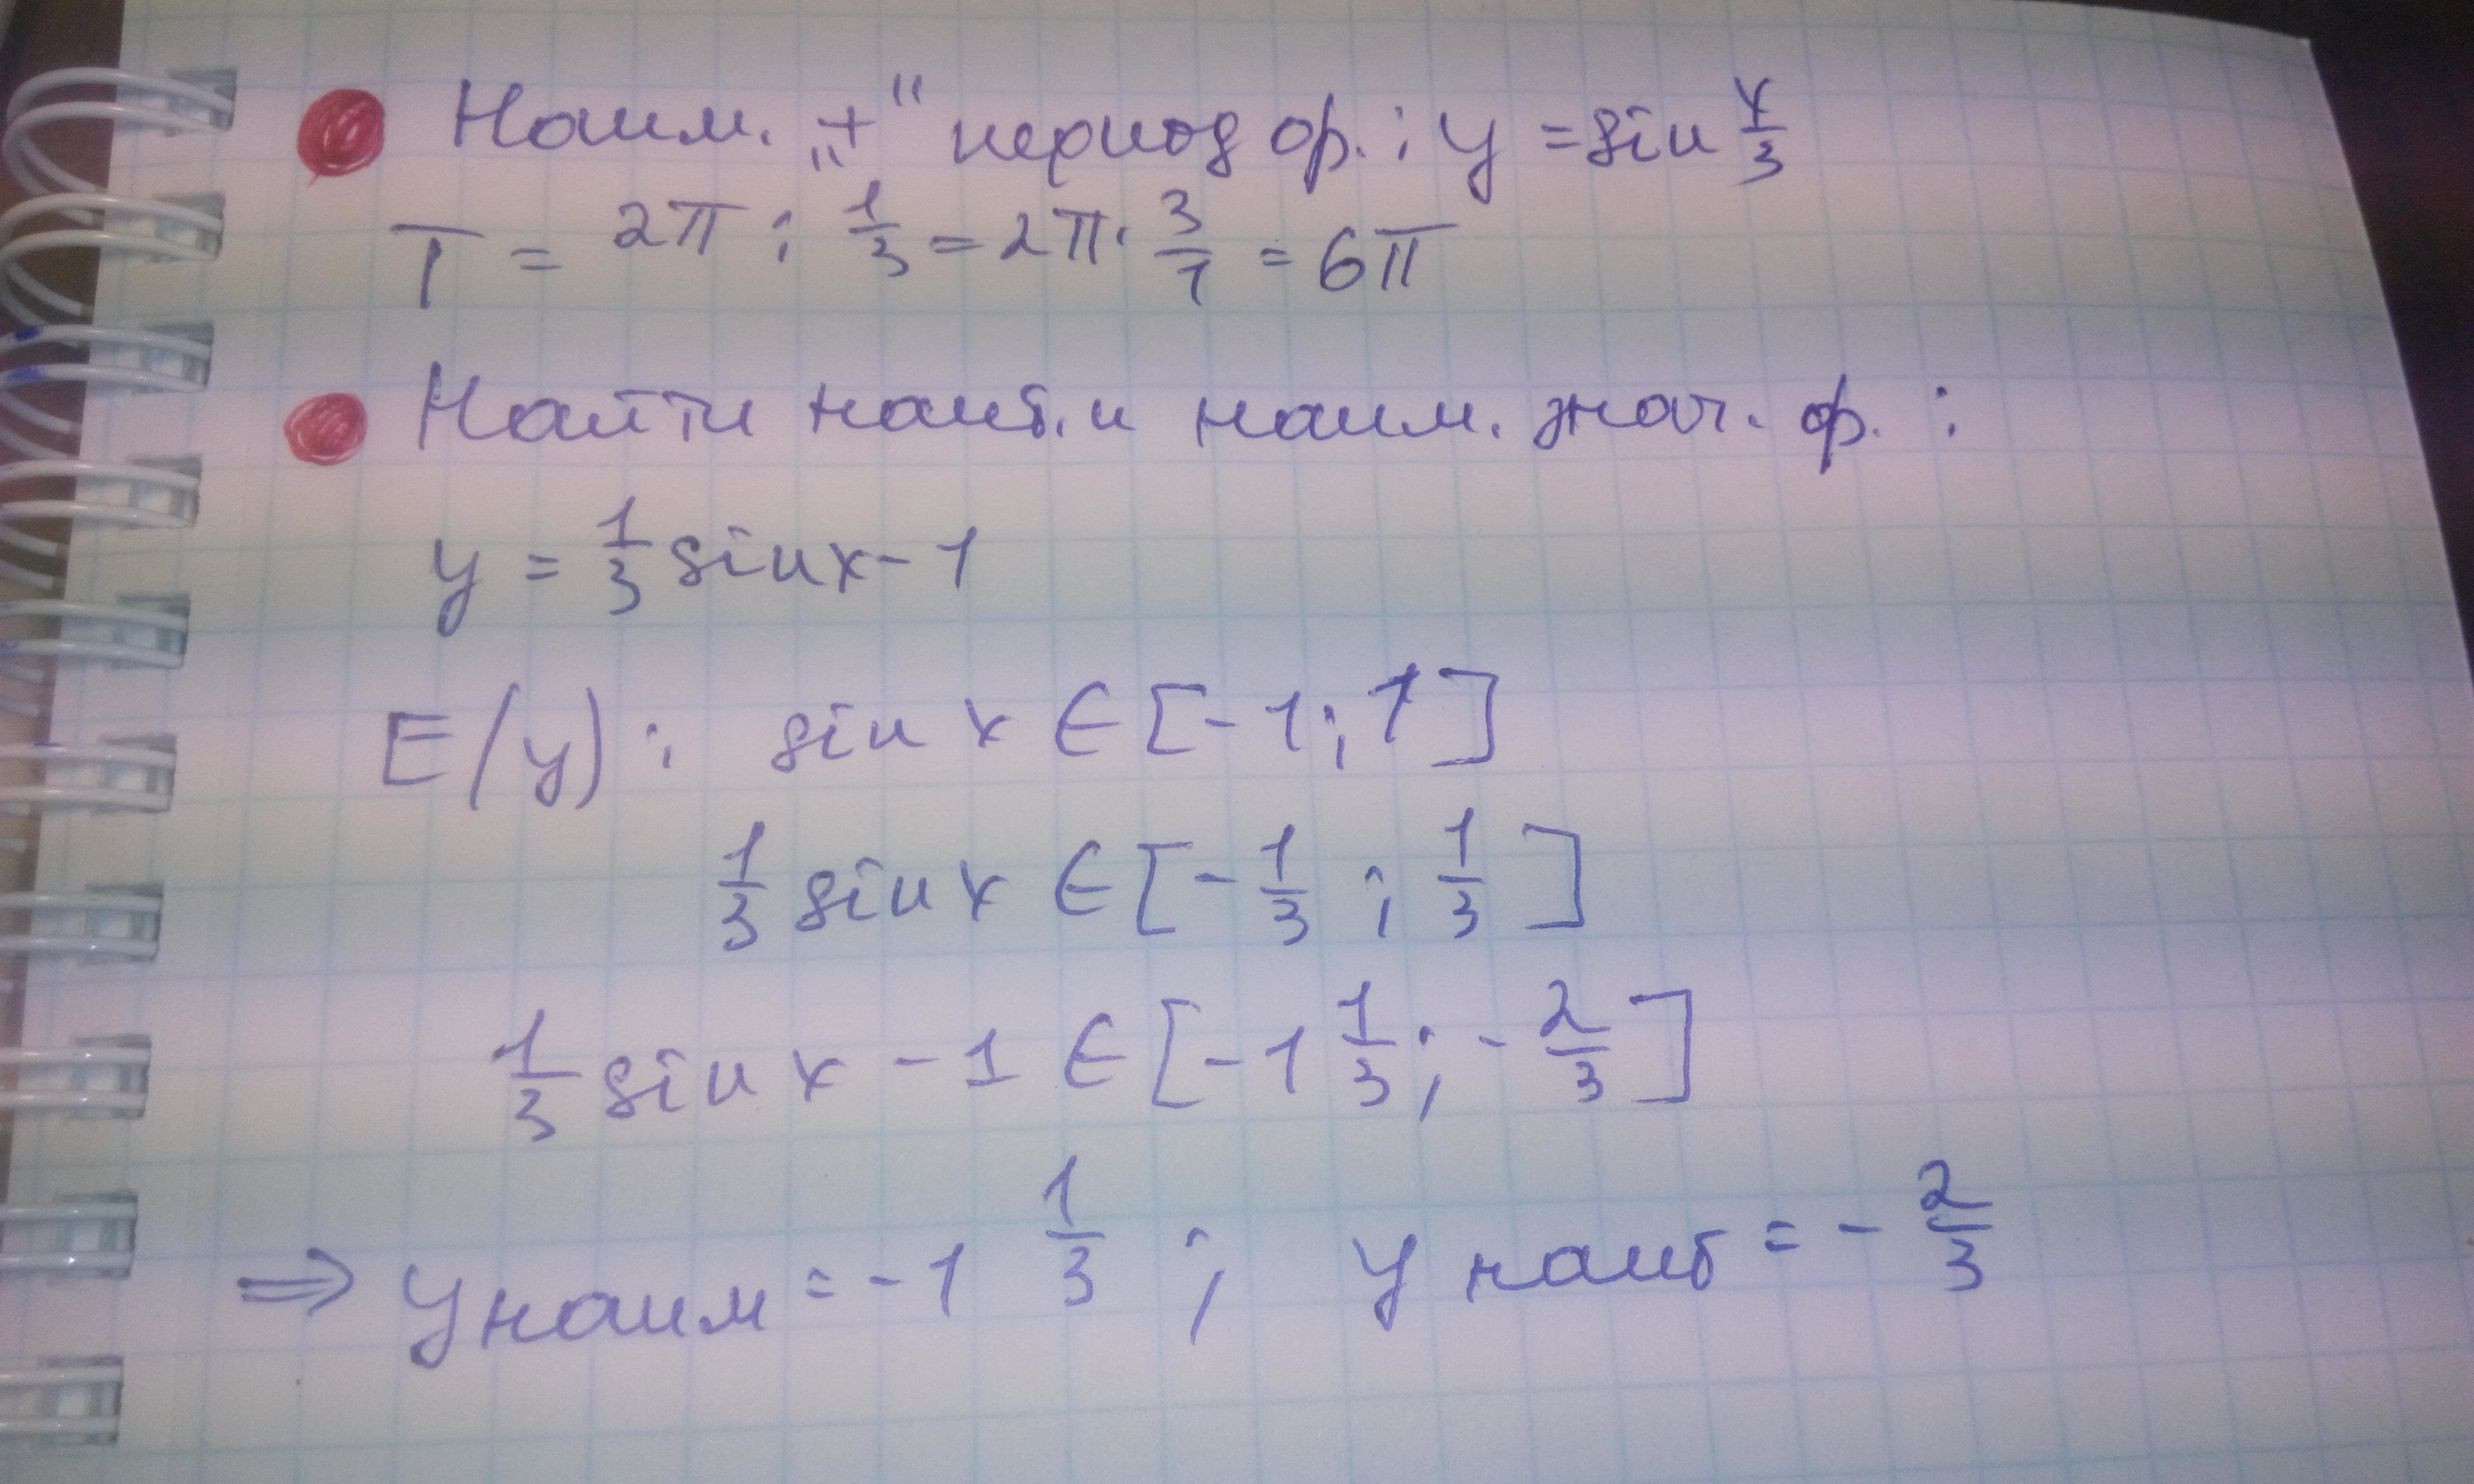 Наим. „+“ период ф.: y = sin x/3
T = 2π : 1/3 = 2π · 3/1 = 6π
Найти наиб. и наим. знач. ф. :
y = 1/3 sin x - 1
E(y): sin x ∈ [-1; 1]
1/3 sin x ∈ [-1/3 ; 1/3]
1/3 sin x - 1 ∈ [-1 1/3; -2/3]
⇒ y наим = -1 1/3 ; y наиб = -2/3